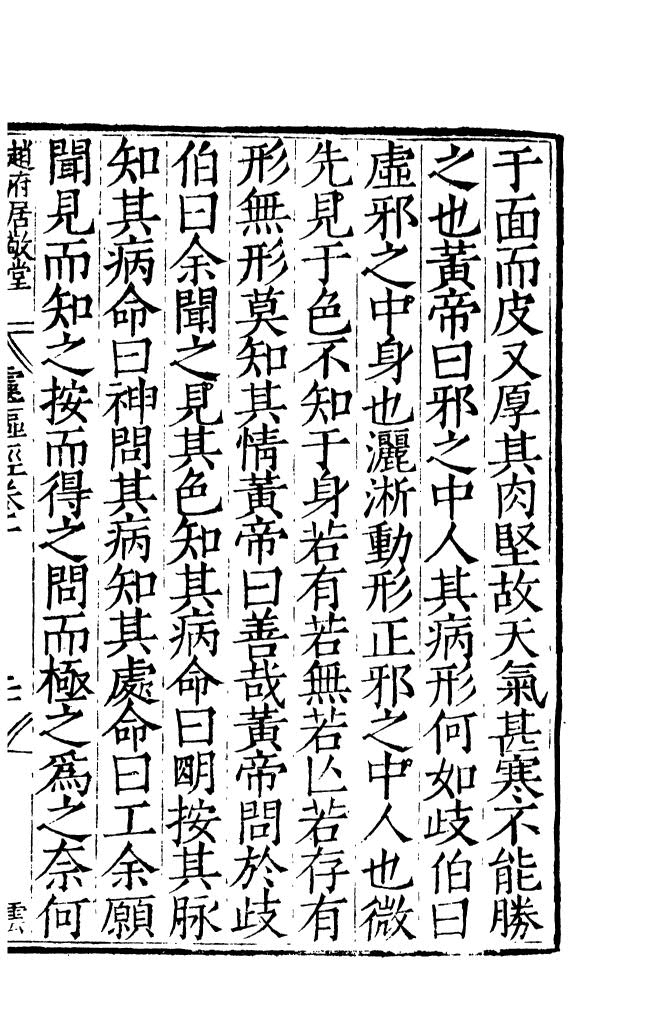 于面而皮又厚其肉堅故天氣甚寒不能勝
之也黃帝曰邪之中人其病形何如歧伯曰
虛邪之中身也灑淅動形正邪之中人也微
先見于色不知于身若有若無若亾若存有
形無形莫知其情黃帝曰善哉黃帝問於歧
伯曰余聞之見其色知其病命曰明按其脉
知其病命曰神問其病知其處命曰工余願
聞見而知之按而得之問而極之爲之奈何
趙府居敬堂
靈樞經卷
雲